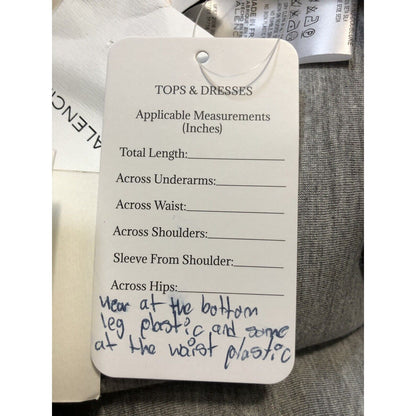 TOPS & DRESSES
Applicable Measurements
(Inches)
Total Length:
Across Underarms:
Across Waist:
Across Shoulders:
Sleeve From Shoulder:
Across Hips:
wear at the bottom
leg plastic and some
at the waist plastic
ALENCI